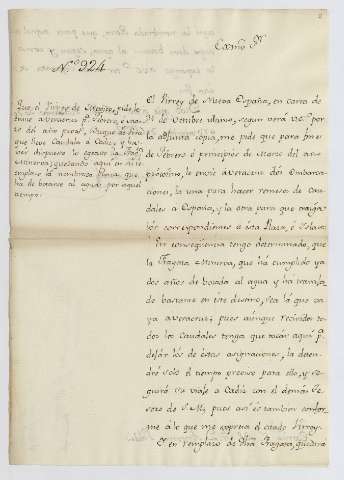 Exmo Sr.
N.º 924
Que el Virrey de Mexico, pide le
envie a Veracruz pª Febrero, ó mar-
zo del año proxº, Buque de Grã
que lleve Caudales a Cadiz, y ha-
vers dispuesto lo execute la Fragª
Minerva; quedando aqui en su re-
emplazo la nombrada Flora, que
ha de botarse al agua por aquel
tiempo.
El Virrey de Nueva España, en carta de
31 de Octubre ultimo, segun verá V.E. por
la adjunta copia, me pide que para fin
de Febrero ó principios de Marzo del año
proximo, le envie a Veracruz dos Embarca-
ciones, la una para hacer remesa de Cau-
dales a España, y la otra para que trayga
los correspondientes á esta Plaza, é Islas.
En conseqüencia tengo determinado, que
la Fragata Minerva, que há cumplido ya
dos años de botada al agua y há trabaja-
do bastante en este destino, sea la que va-
ya a Veracruz; pues aunque recividos to-
dos los Caudales tenga que tocar aqui pª
dejar los de estas asignaciones, la deten-
dré solo el tiempo preciso para ello, y se-
guirá su viaje a Cadiz con el demás te-
soro de S.M.; pues asi es tambien confor-
me á lo que me expresa el citado Virrey.
Y en remplazo de dha Fragata, quedara